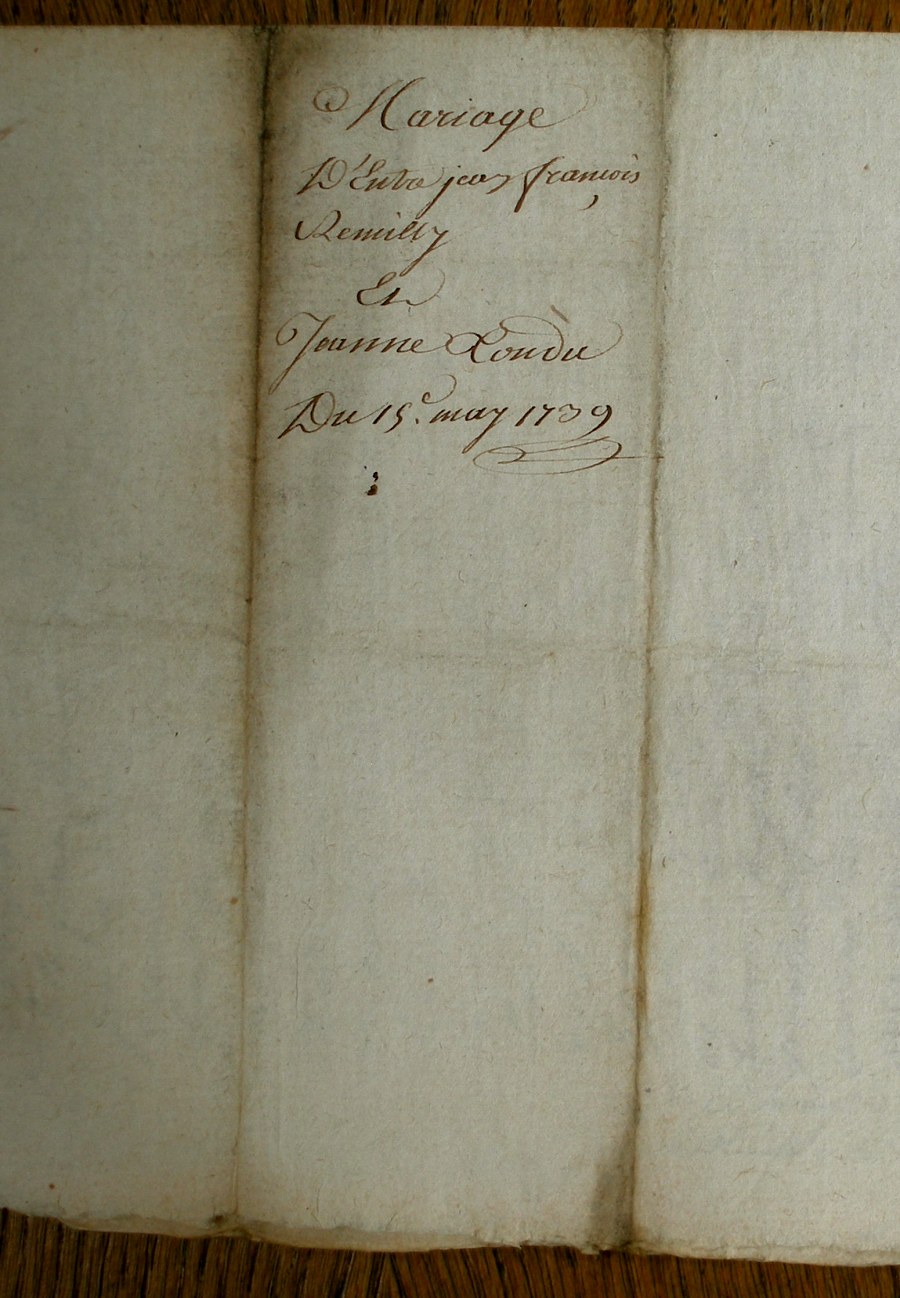 Mariage
D'Entre jean françois
Remilly
Et
Jeanne Londu
Du 15e. may 1739